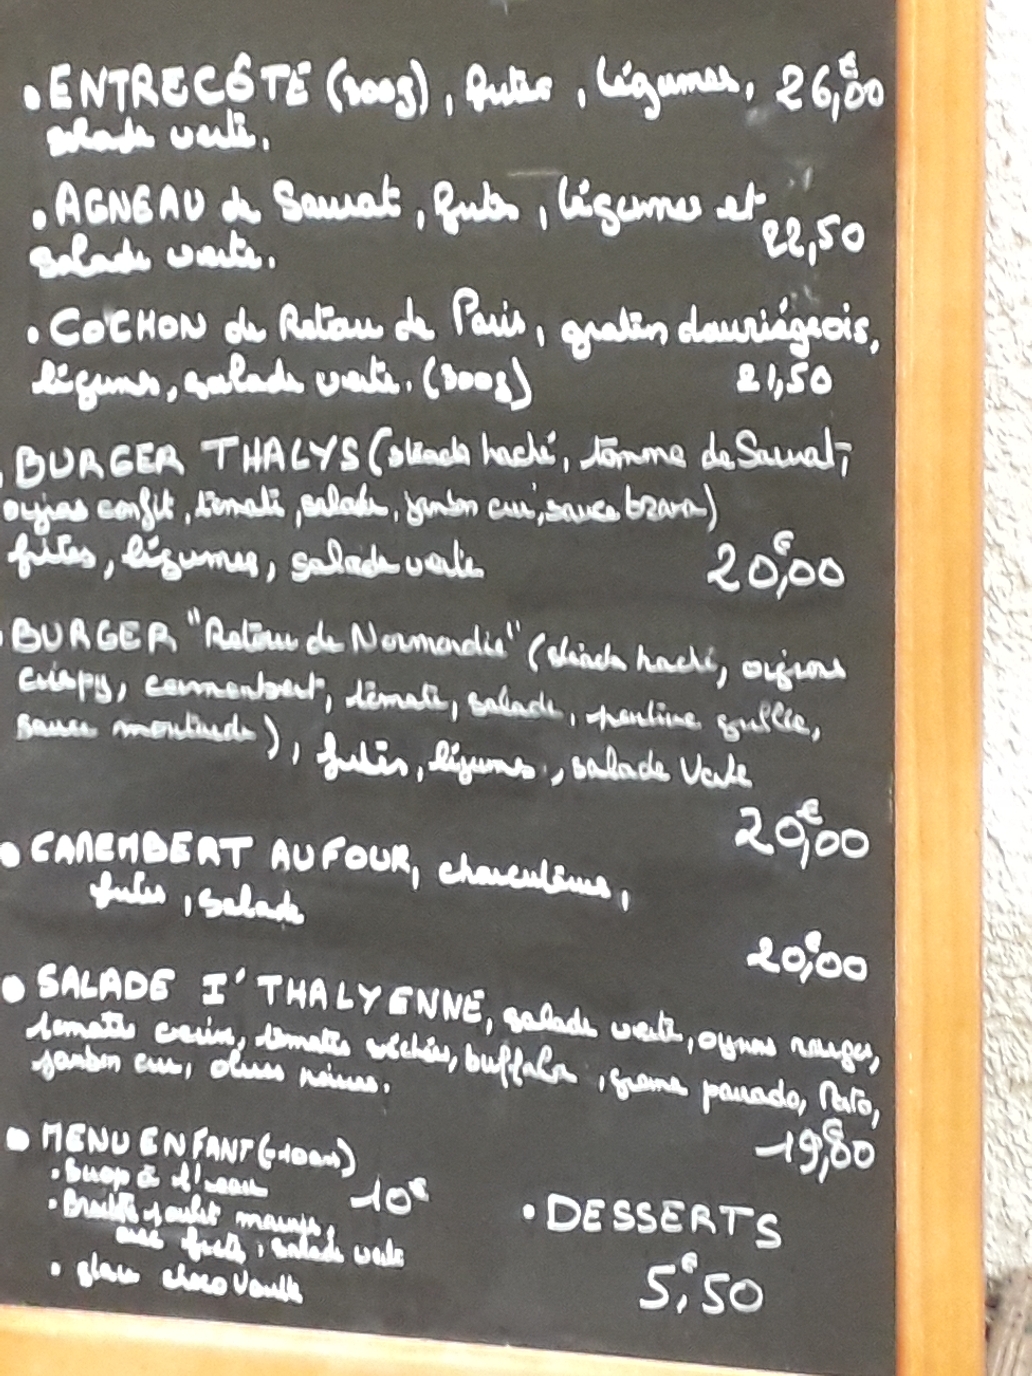 • ENTRECÔTE (300g), frites, légumes, 26,00€
salade verte.
• AGNEAU de Saurat, frites, légumes et
22,50
salade verte.
• COCHON de Retour de Paris, gratin dauriégeois,
légumes, salade verte. (300g) 21,50
BURGER THALYS (steack haché, tomme de Saurat,
oignons confit, tomate, salade, jambon cru, sauce brava)
frites, légumes, salade verte 20,00€
BURGER "Retour de Normandie" (steack haché, oignons
crispy, camembert, tomate, salade, poitrine grillée,
sauce moutarde), frites, légumes, salade verte
20,00€
• CAMEMBERT AU FOUR, charcuteries,
frites, salade
20,00€
• SALADE I'THALYENNE, salade verte, oignons rouges,
tomates cerise, tomates séchées, buffala, grana panado, Pesto,
jambon cru, olives noires.
19,80€
• MENU ENFANT (-10ans)
• Sirop à l'eau 10€
• poulet
avec frites, salade verte
• glace choco vanille
• DESSERTS
5,50€